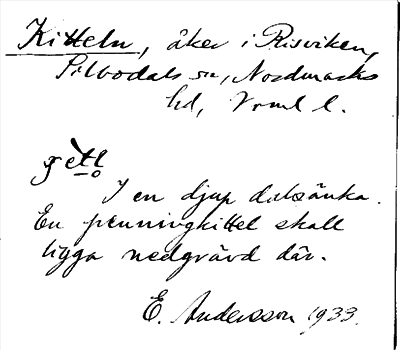 Kitteln, åker i Risviken,
Silbodals sn, Nordmarks
hd, Vrml l.
I en djup dalsänka.
En penningkittel skall
ligga nedgrävd där.
E. Andersson 1933.